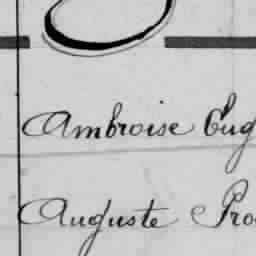 Ambroise Eug
Auguste Pro